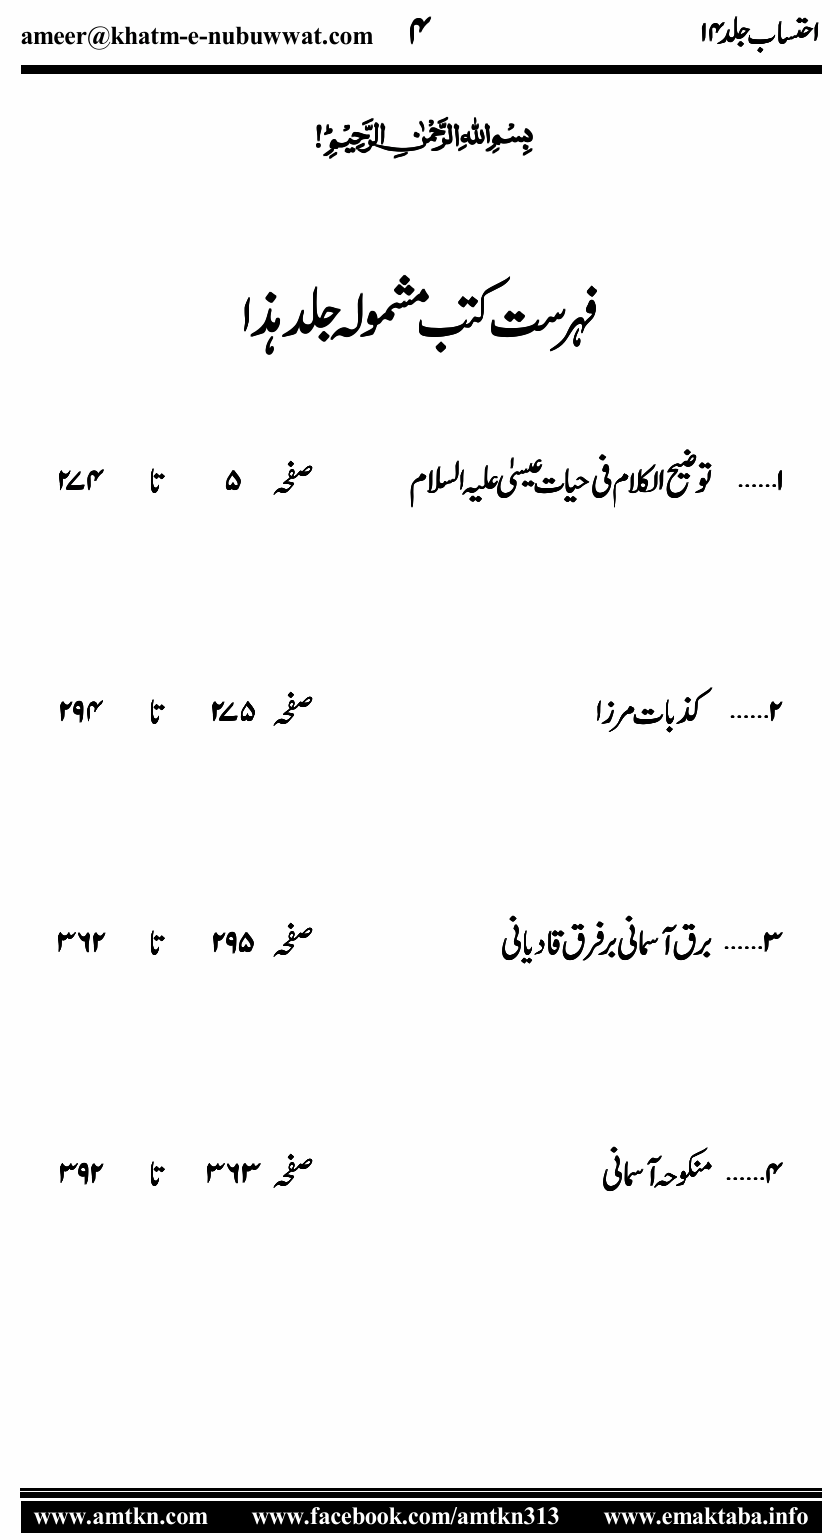 احتساب جلد ۱۴ ۴ ameer@khatm-e-nubuwwat.com
بِسْمِ اللهِ الرَّحْمٰنِ الرَّحِيْمِ!
فہرست کتب مشمولہ جلد ہذا
۱...... توضیح الکلام فی حیات عیسیٰ علیہ السلام صفحہ ۵ تا ۲۷۴
۲...... کذبات مرزا صفحہ ۲۷۵ تا ۲۹۴
۳...... برق آسمانی برفرق قادیانی صفحہ ۲۹۵ تا ۳۶۲
۴...... منکوحہ آسمانی صفحہ ۳۶۳ تا ۳۹۲
www.amtkn.com www.facebook.com/amtkn313 www.emaktaba.info